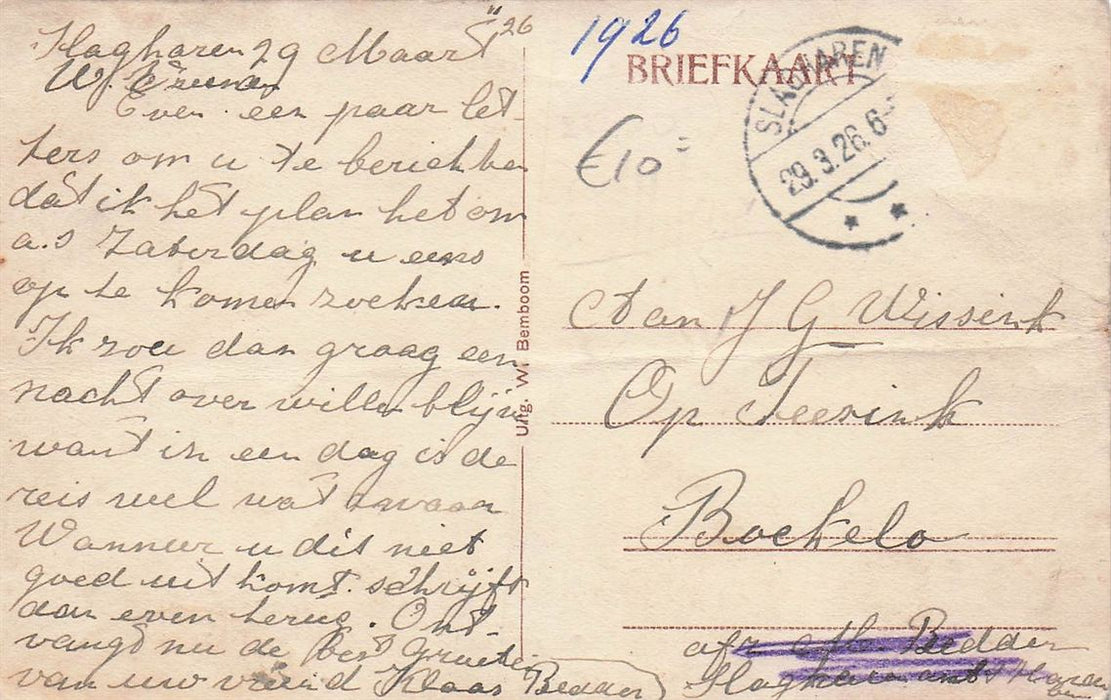 Slagharen 29 Maart "26
W. Vriend
Even een paar let-
ters om u te berichten
dat ik het plan heb om
a.s Zaterdag u eens
op te komen zoeken.
Ik zou dan graag een
nacht over willen blijven
want in een dag is de
reis wel wat zwaar
Wanneer u dit niet
goed uit komt. schrijft
dan even terug. Ont-
vangt nu de best Groeten
van uw vriend Klaas Bedder
Uitg. W. Bemboom
1926
BRIEFKAART
€10=
SLAGHAREN
29.3.26.6
Aan J G Wissink
Op Teesink
Boekelo
afz Bedder
Slagharen